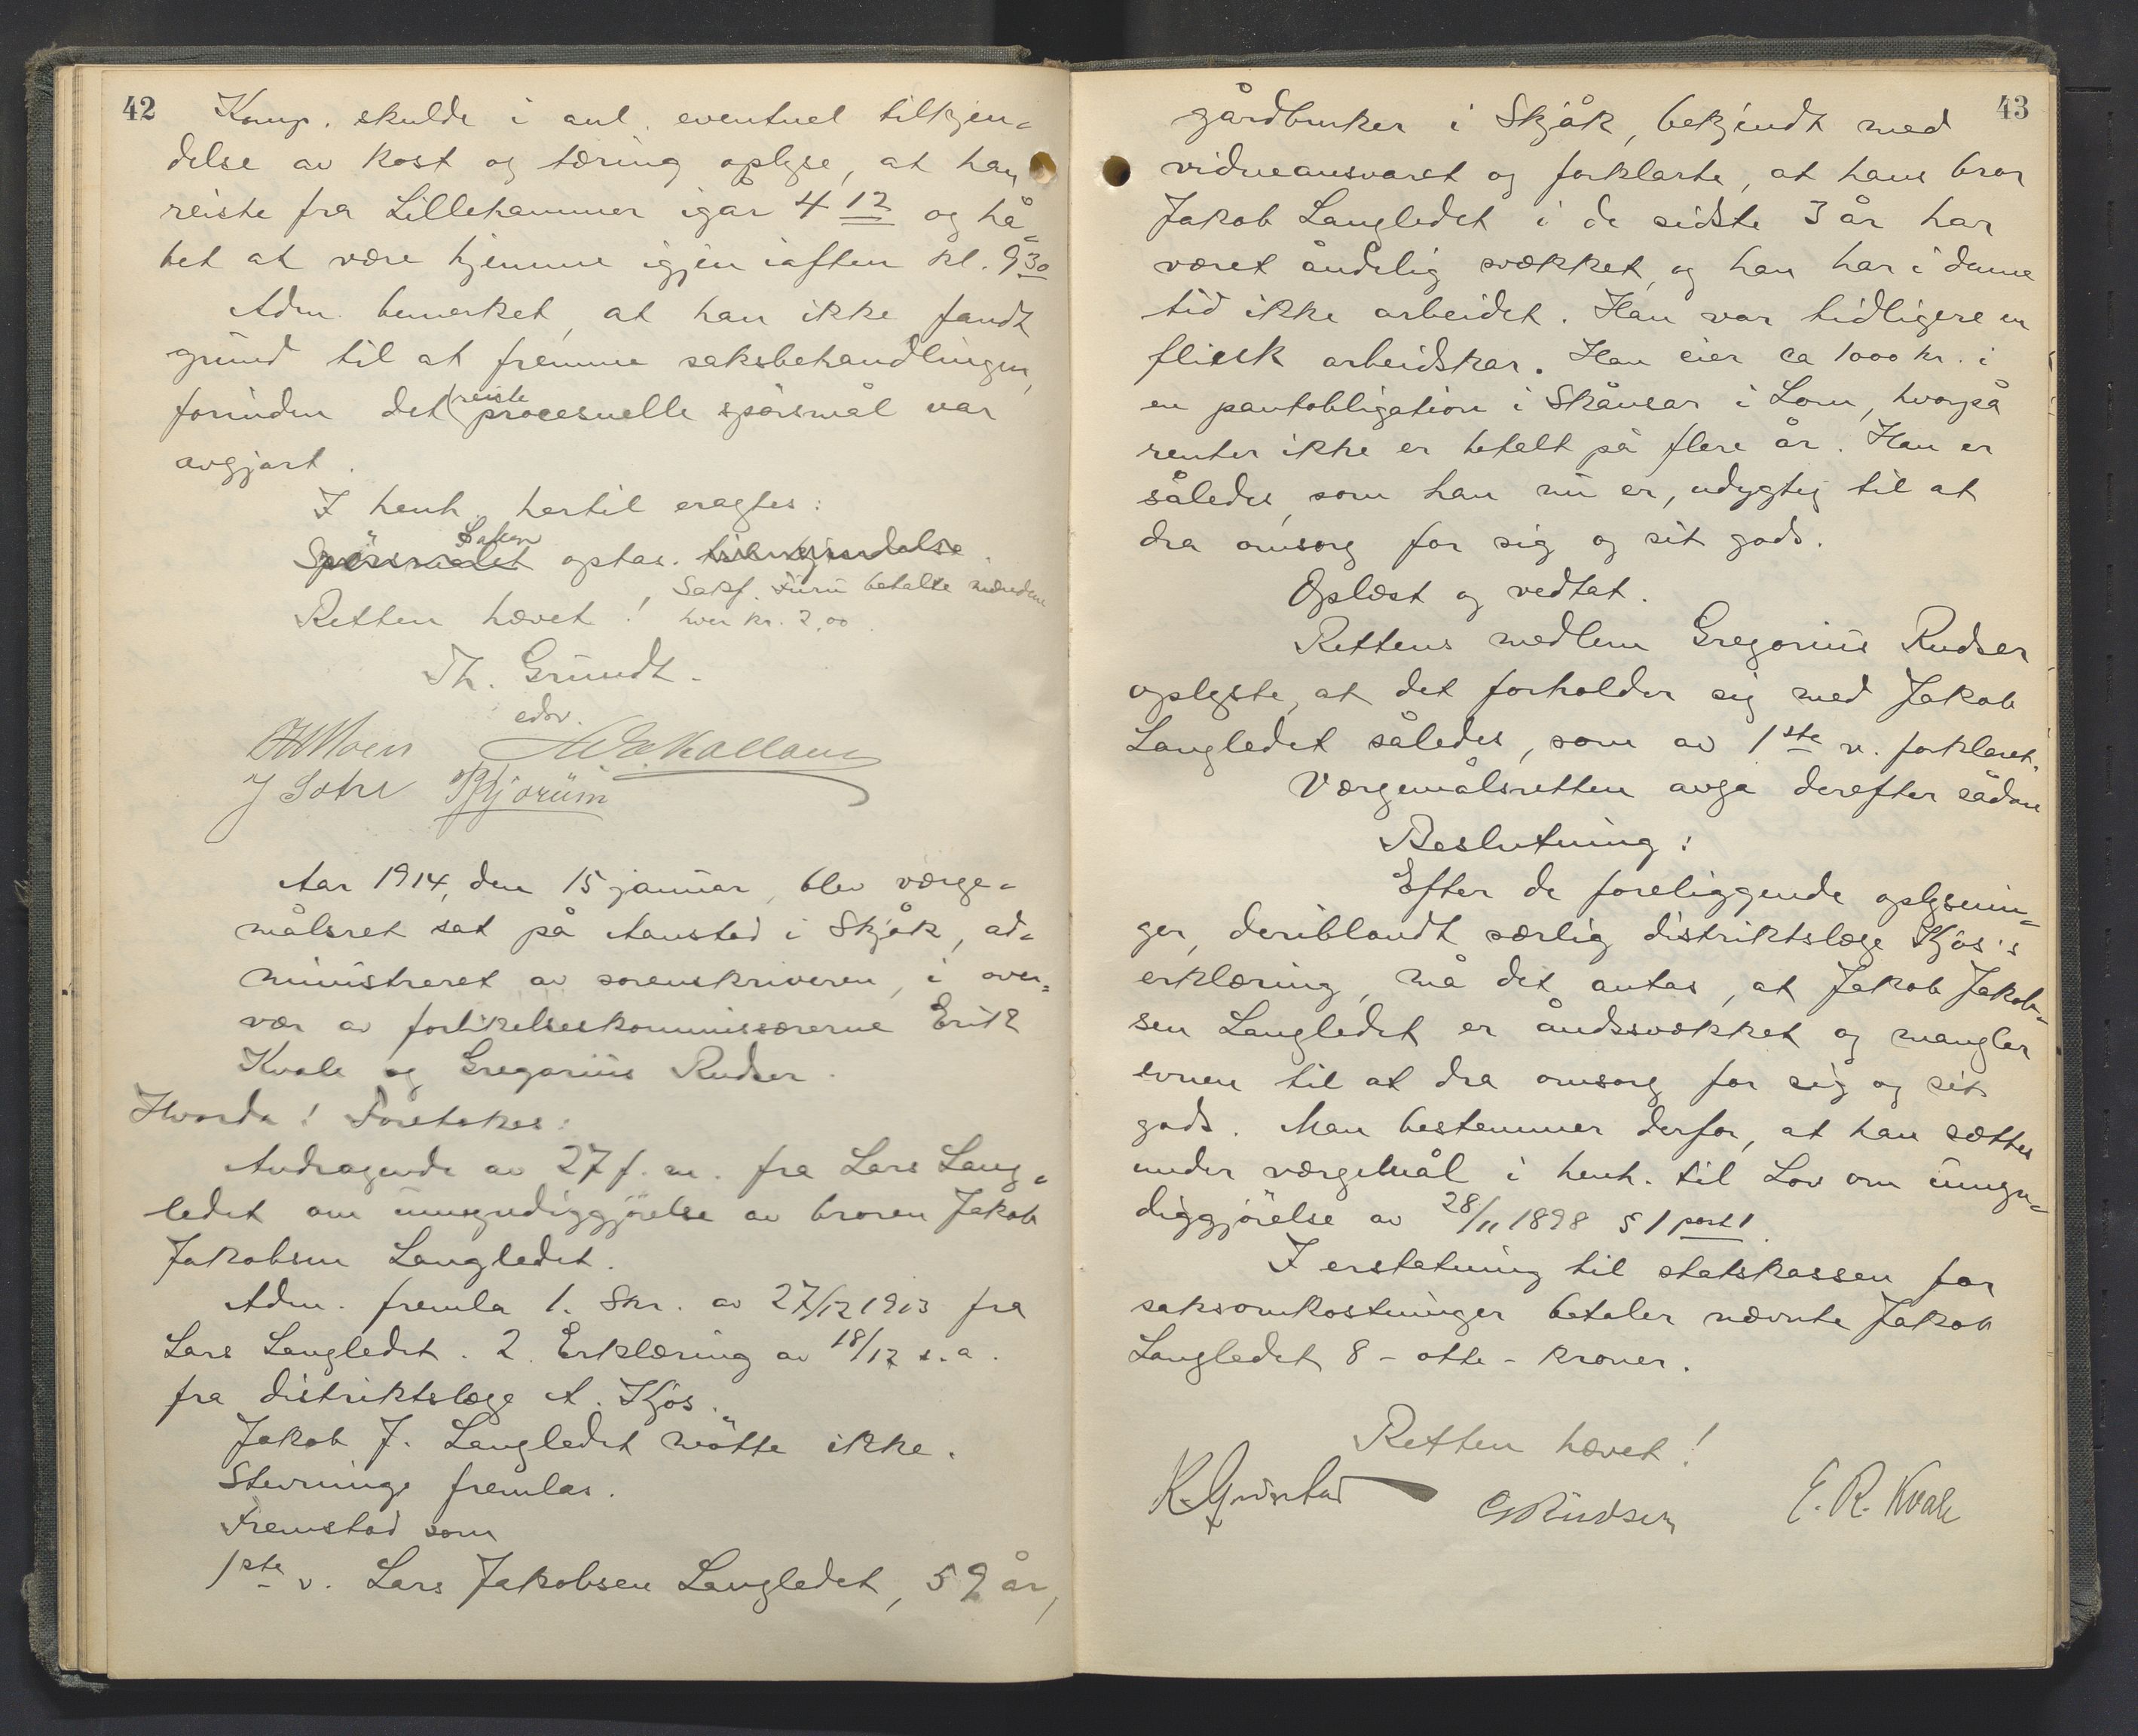 42
Komp. skulde i anl. eventuel tilkjen-
delse av kost og tæring oplyse, at han
reiste fra Lillehammer igår 4 12 og hå-
bet at være hjemme igjen iaften kl. 9 30
Adm. bemerket, at han ikke fandt
grund til at fremme saksbehandlingen,
forinden det reiste procesuelle spørsmål var
avgjort.
I henh. hertil eragtes:
Spørsmålet Saken optas. til kjendelse.
Retten hævet! Sakf. Furu betalte mændene
hver kr. 2,00.
Th. Grundt.
edsv.
J Sotre
Aar 1914, den 15 januar, blev værge-
målsret sat på Aanstad i Skjåk, ad-
ministreret av sorenskriveren, i over-
vær av forlikelseskommissærerne Erik
Kvale og Gregorius Rudser.
Hvorda! Foretokes:
Andragende av 27 f. m. fra Lars Lang-
ledet om umyndiggjörelse av broren Jakob
Jakobsen Langledet.
Adm. fremla 1. Skr. av 27/12 1913 fra
Lars Langledet. 2. Erklæring av 18/12 s. a.
fra distriktslæge A. Kjos.
Jakob J. Langledet mötte ikke.
Stevninge fremlas.
Fremstod som
1ste v. Lars Jakobsen Langledet, 59 år,
43
gårdbruker i Skjåk, bekjendt med
vidneansvaret og forklarte, at hans bror
Jakob Langledet i de sidste 3 år har
været åndelig svækket, og han har i denne
tid ikke arbeidet. Han var tidligere en
flink arbeidskar. Han eier ca 1000 kr. i
en pantobligation i Skånsar i Lom, hvorpå
renter ikke er betalt på flere år. Han er
således, som han nu er, udygtig til at
dra omsorg for sig og sit gods.
Oplæst og vedtat.
Rettens medlem Gregorius Rudser
oplyste, at det forholder sig med Jakob
Langledet således, som av 1ste v. forklaret.
Værgemålsretten avga derefter sådan
Beslutning:
Efter de foreliggende oplysnin-
ger, deriblandt særlig distriktslæge Kjos's
erklæring, må det antas, at Jakob Jakob-
sen Langledet er åndssvækket og mangler
evnen til at dra omsorg for sig og sit
gods. Man bestemmer derfor, at han sættes
under værgemål i henh. til Lov om umyn-
diggjörelse av 28/11 1898 § 1 post 1.
I erstatning til statskassen for
saksomkostninger betaler nævnte Jakob
Langledet 8 - otte - kroner.
Retten hævet!
G Rudser E. R. Kvale